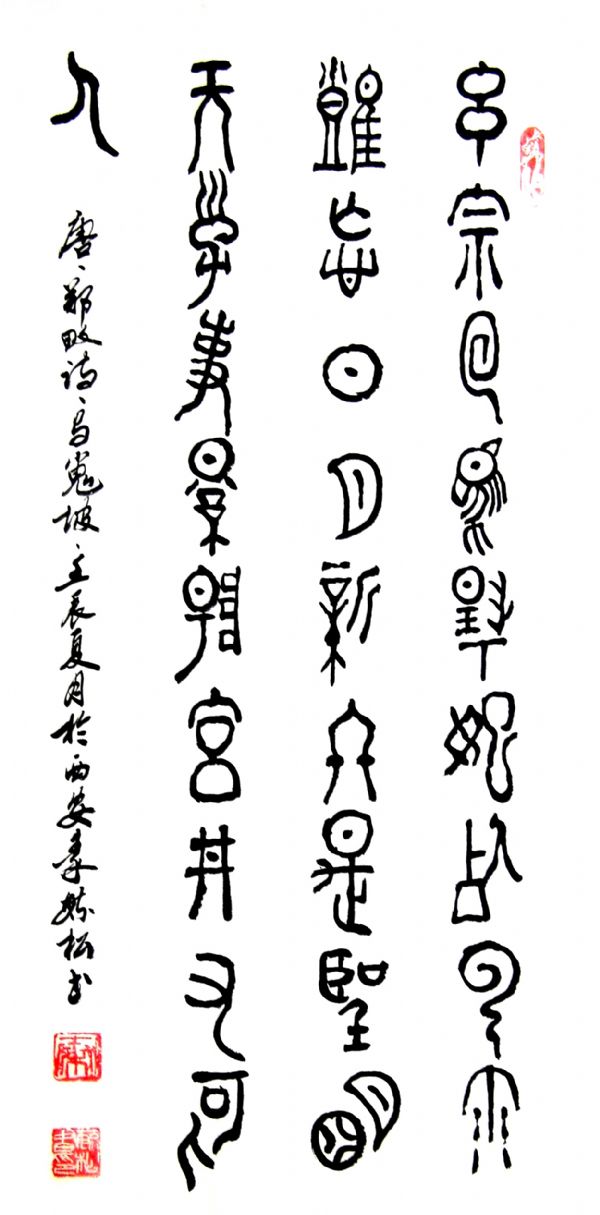 玄宗回馬楊妃死雲雨
難忘日月新終是聖明
天子事景陽宮井又何
人
唐、鄭畋詩、馬嵬坡、壬辰夏月於西安李毓松书